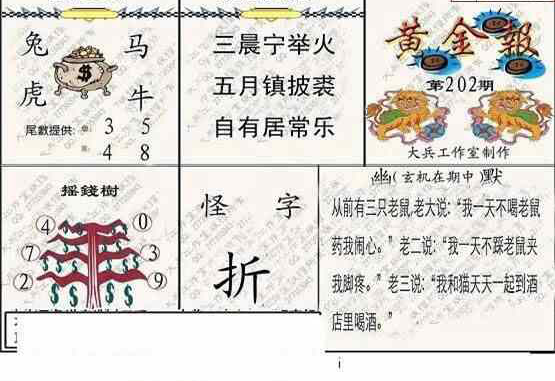 兔 马
虎 牛
尾數提供: 單 3 5
雙 4 8
三晨宁举火
五月镇披裘
自有居常乐
黄金報
第202期
大兵工作室制作
摇錢樹
4 0
7 3
2 9
怪 字
折
幽(玄机在期中 默
从前有三只老鼠,老大说:“我一天不喝老鼠
药我闹心。” 老二说:“我一天不踩老鼠夹
我脚疼。” 老三说:“我和猫天天一起到酒
店里喝酒。”